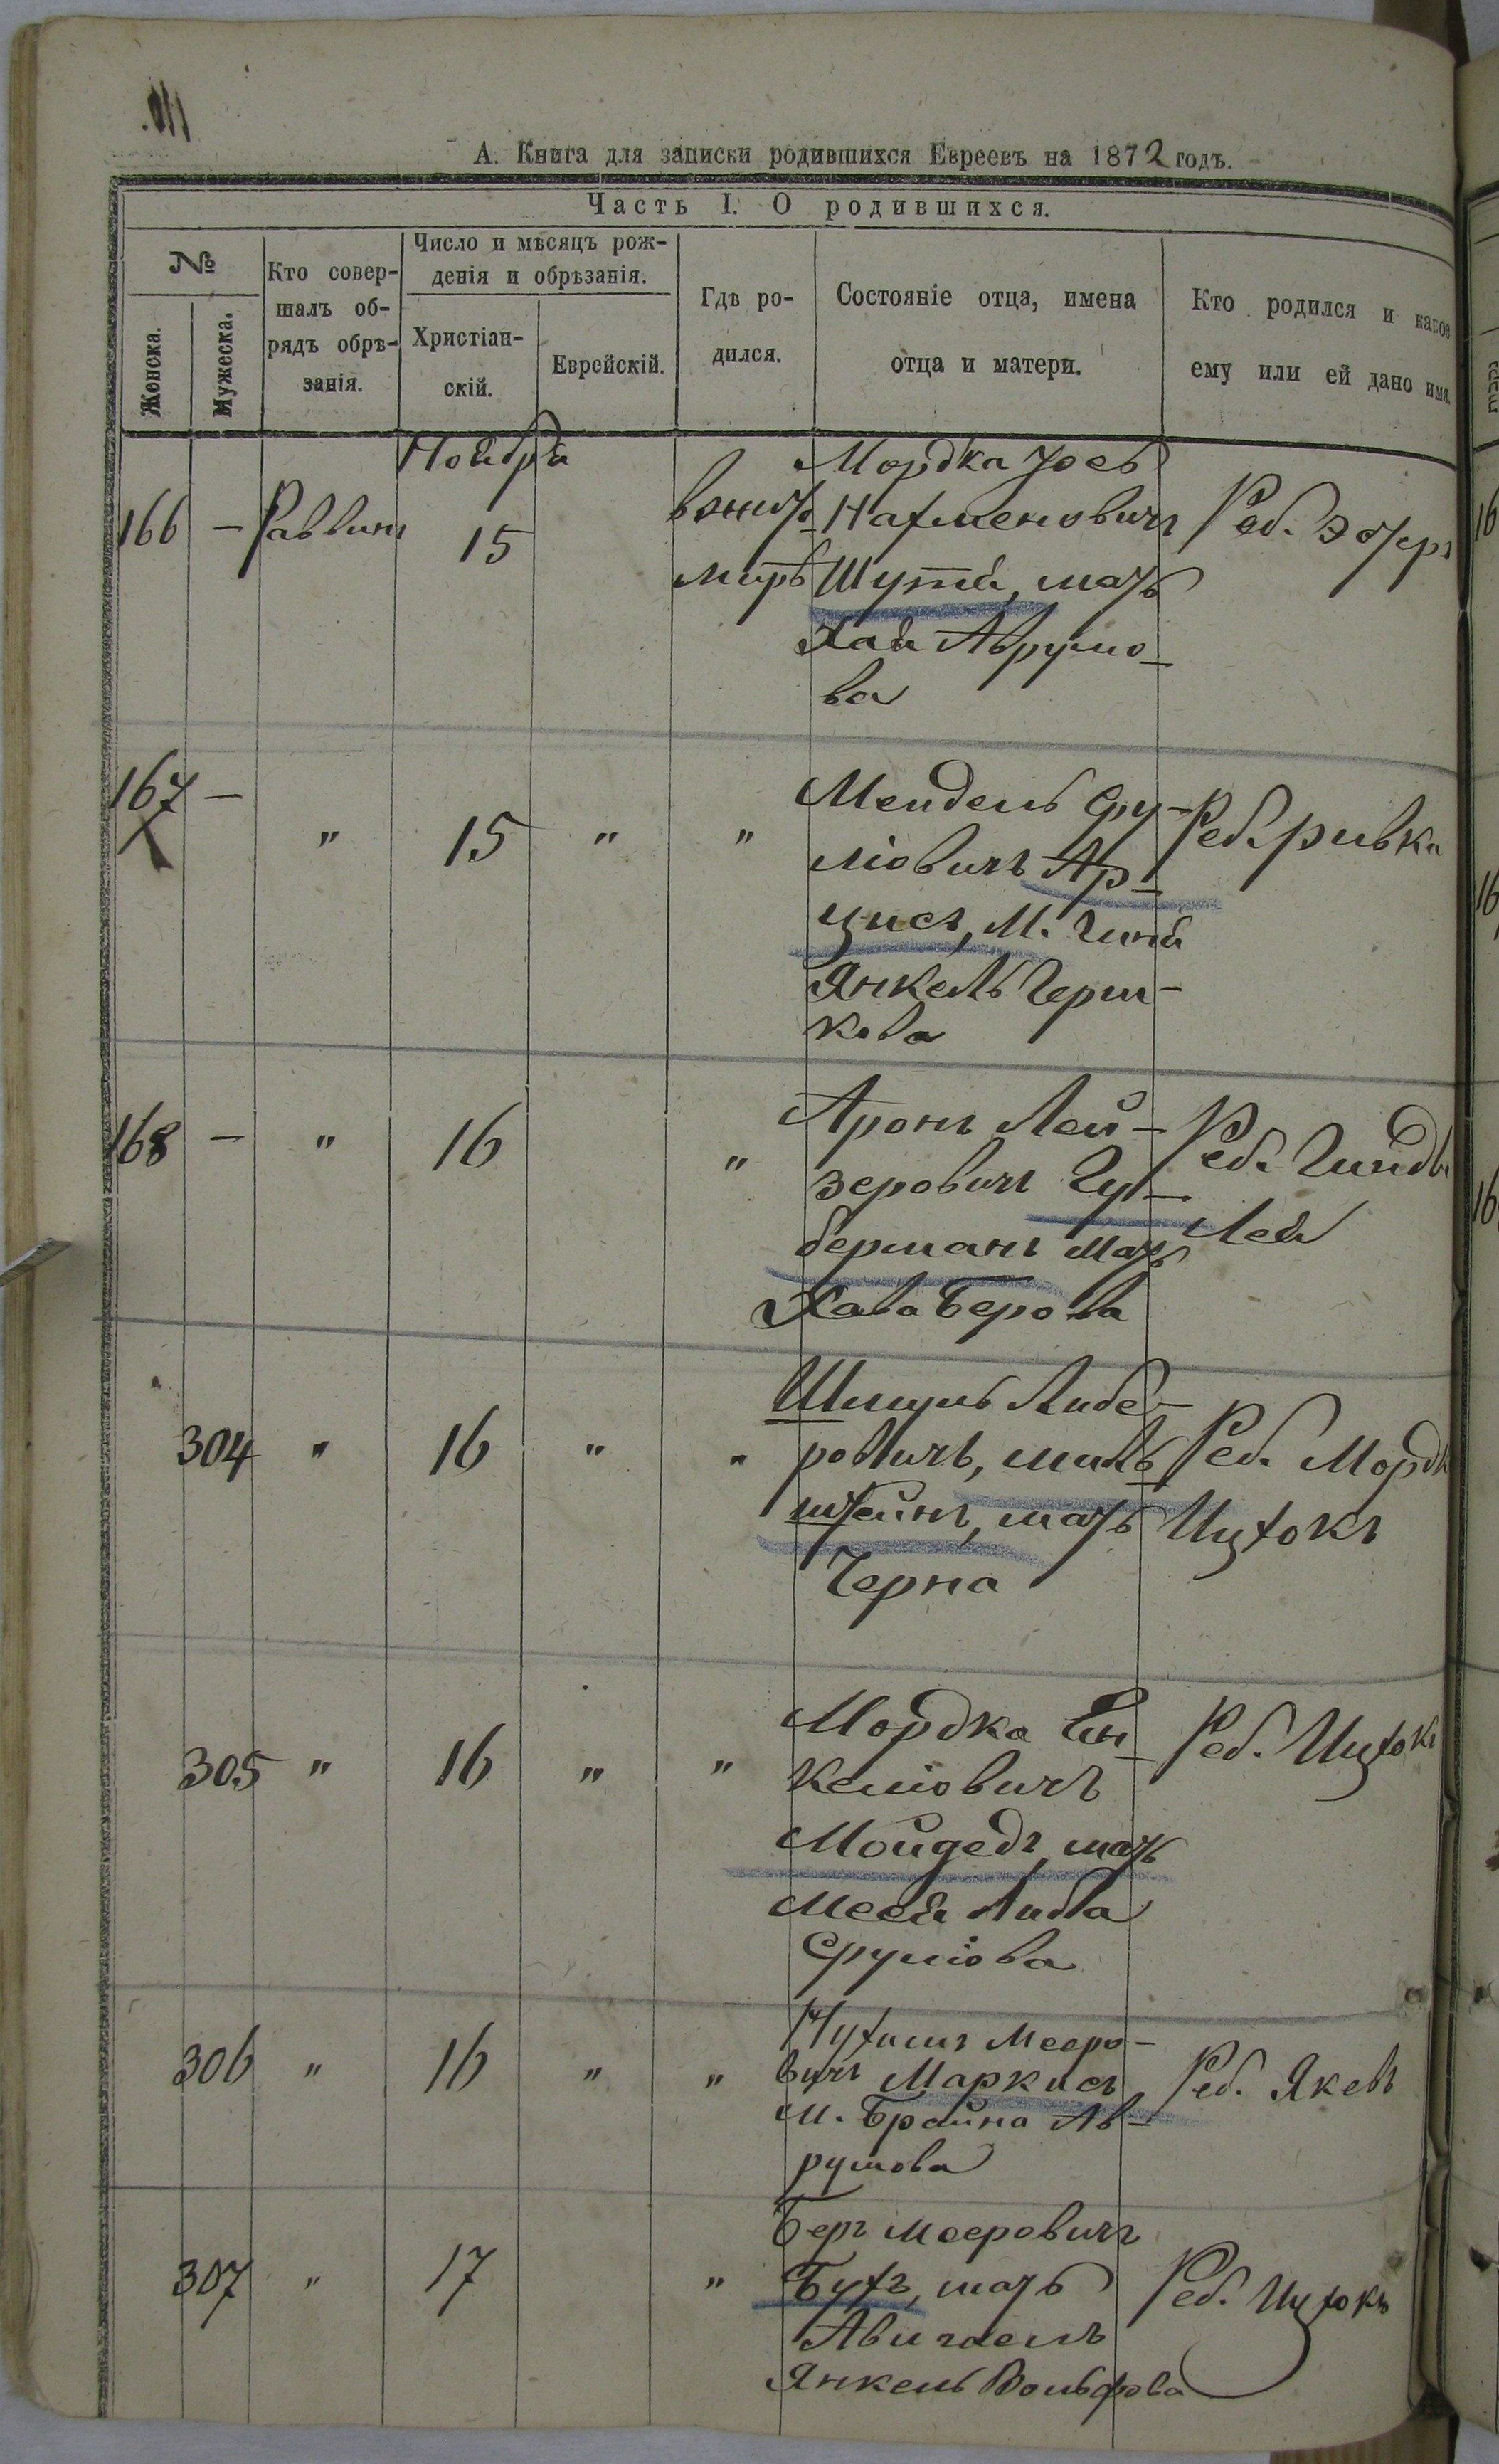 А. Книга для записки родившихся Евреевъ на 1872 годъ.
Часть I. О родившихся.
№
Женска.
Мужеска.
Кто совер-
шалъ об-
рядъ обрѣ-
занія.
Число и мѣсяцъ рож-
денія и обрѣзанія.
Христіан-
скій.
Еврейскій.
Гдѣ ро-
дился.
Состояніе отца, имена
отца и матери.
Кто родился и какое
ему или ей дано имя.
Ноября
166 — Раввинъ 15
вжито
миръ
Мордка Іось
Нахмановичъ
Шутя, мать
Хая Аврумо-
ва
Реб. Эстръ
167 — " 15 " "
Мендель Сру-
ліовичъ Ар-
цисъ, М. Чиня
Янкель Герш-
кова
Реб. Ривка
168 — " 16 "
Аронъ Лей-
зеровичъ Гу-
берманъ мать
Хава Берова
Реб. Гинда
Лея
304 " 16 " "
Шмуль Либе-
ровичъ, миль
штейнъ, мать
Черна
Реб. Мордк
Ицхокъ
305 " 16 " "
Мордка Ян-
келіовичъ
Мойдедъ, мать
Месея Либа
Сруліова
Реб. Ицхокъ
306 " 16 " "
Нухимъ Мееро-
вичъ Маркисъ
М. Брайна Ав-
румова
Реб. Якевъ
307 " 17 "
Беръ Мееровичъ
Бухъ, мать
Авигаелъ
Янкель Вольфова
Реб. Ицхокъ